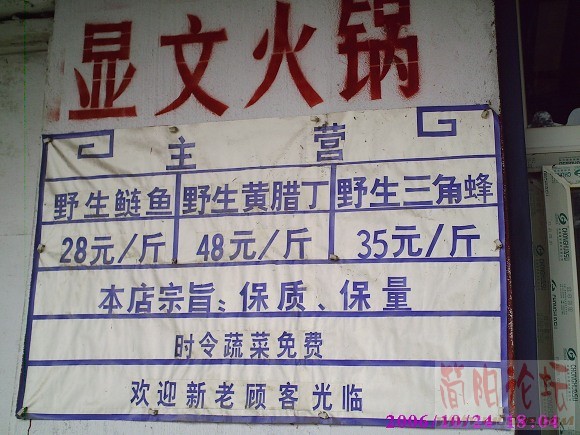 显文火锅
主 营
野生鲢鱼 野生黄腊丁 野生三角蜂
28元/斤 48元/斤 35元/斤
本店宗旨：保质、保量
时令蔬菜免费
欢迎新老顾客光临
简阳论坛
2006/10/24 18:04